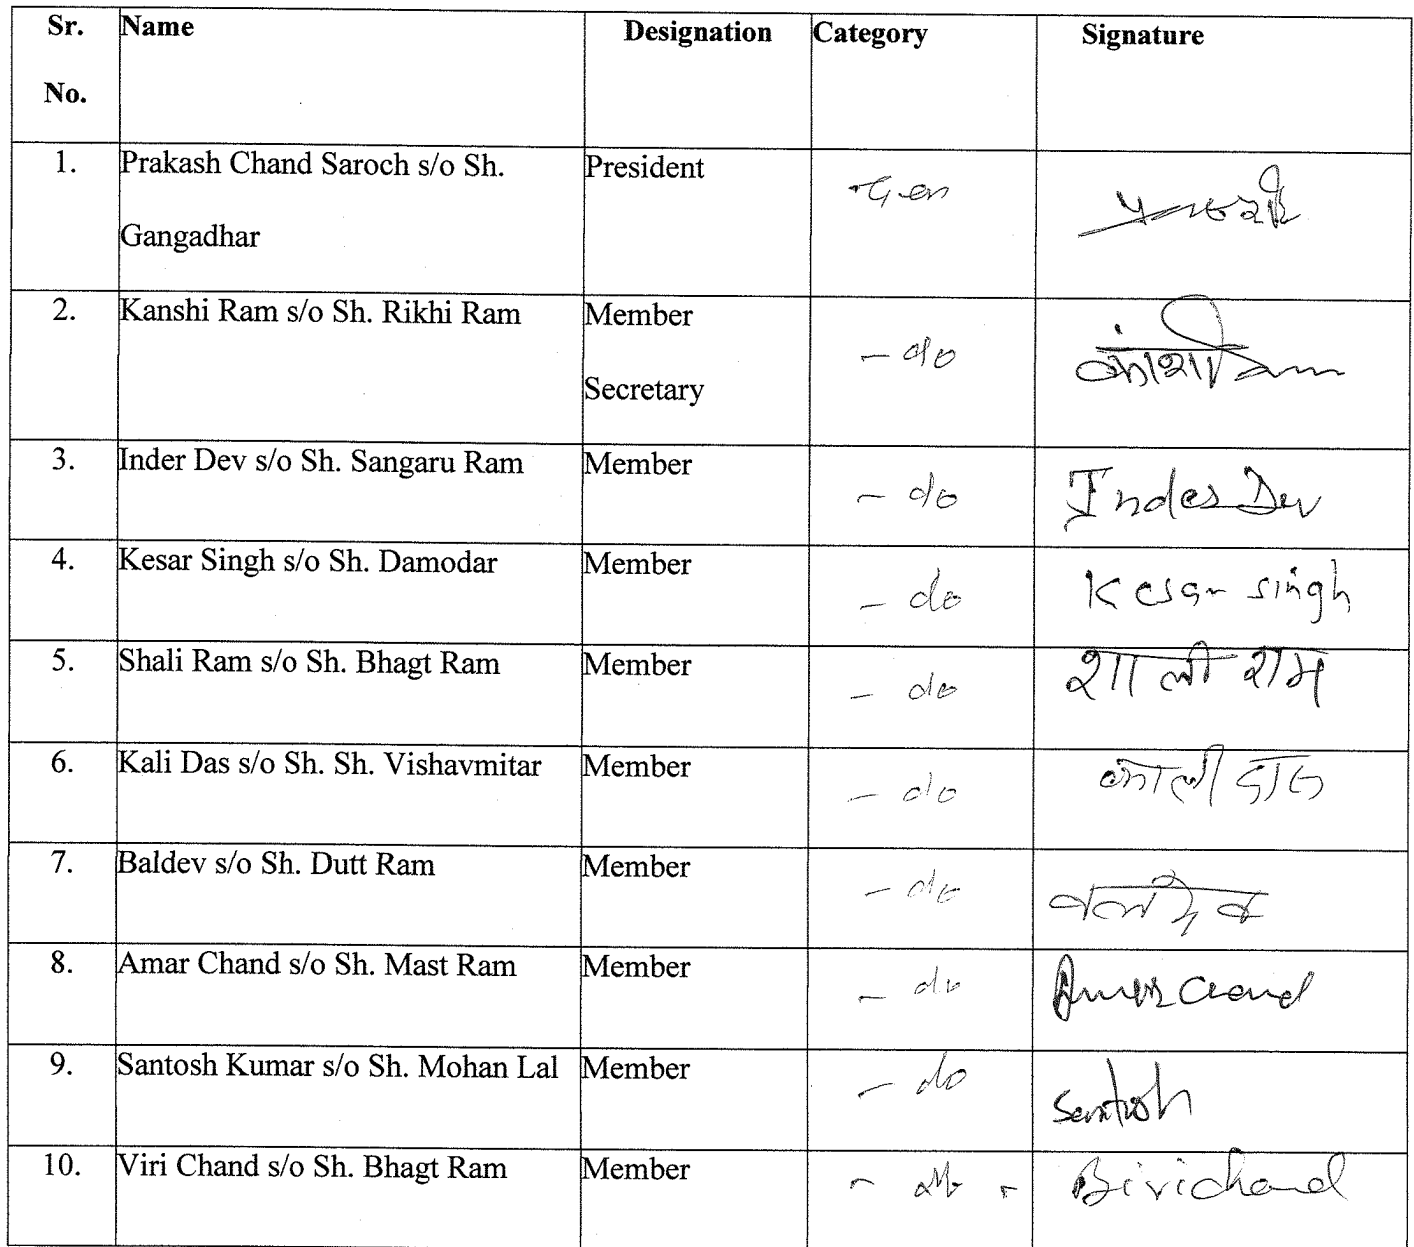 Sr. No. Name Designation Category Signature
1. Prakash Chand Saroch s/o Sh. Gangadhar President Gen
2. Kanshi Ram s/o Sh. Rikhi Ram Member Secretary - do कांशी राम
3. Inder Dev s/o Sh. Sangaru Ram Member - do Inder Dev
4. Kesar Singh s/o Sh. Damodar Member - do Kesar singh
5. Shali Ram s/o Sh. Bhagt Ram Member - do शाली राम
6. Kali Das s/o Sh. Sh. Vishavmitar Member - do काली दास
7. Baldev s/o Sh. Dutt Ram Member - do बलदेव
8. Amar Chand s/o Sh. Mast Ram Member - do Amar Chand
9. Santosh Kumar s/o Sh. Mohan Lal Member - do Santosh
10. Viri Chand s/o Sh. Bhagt Ram Member - do - Birichand